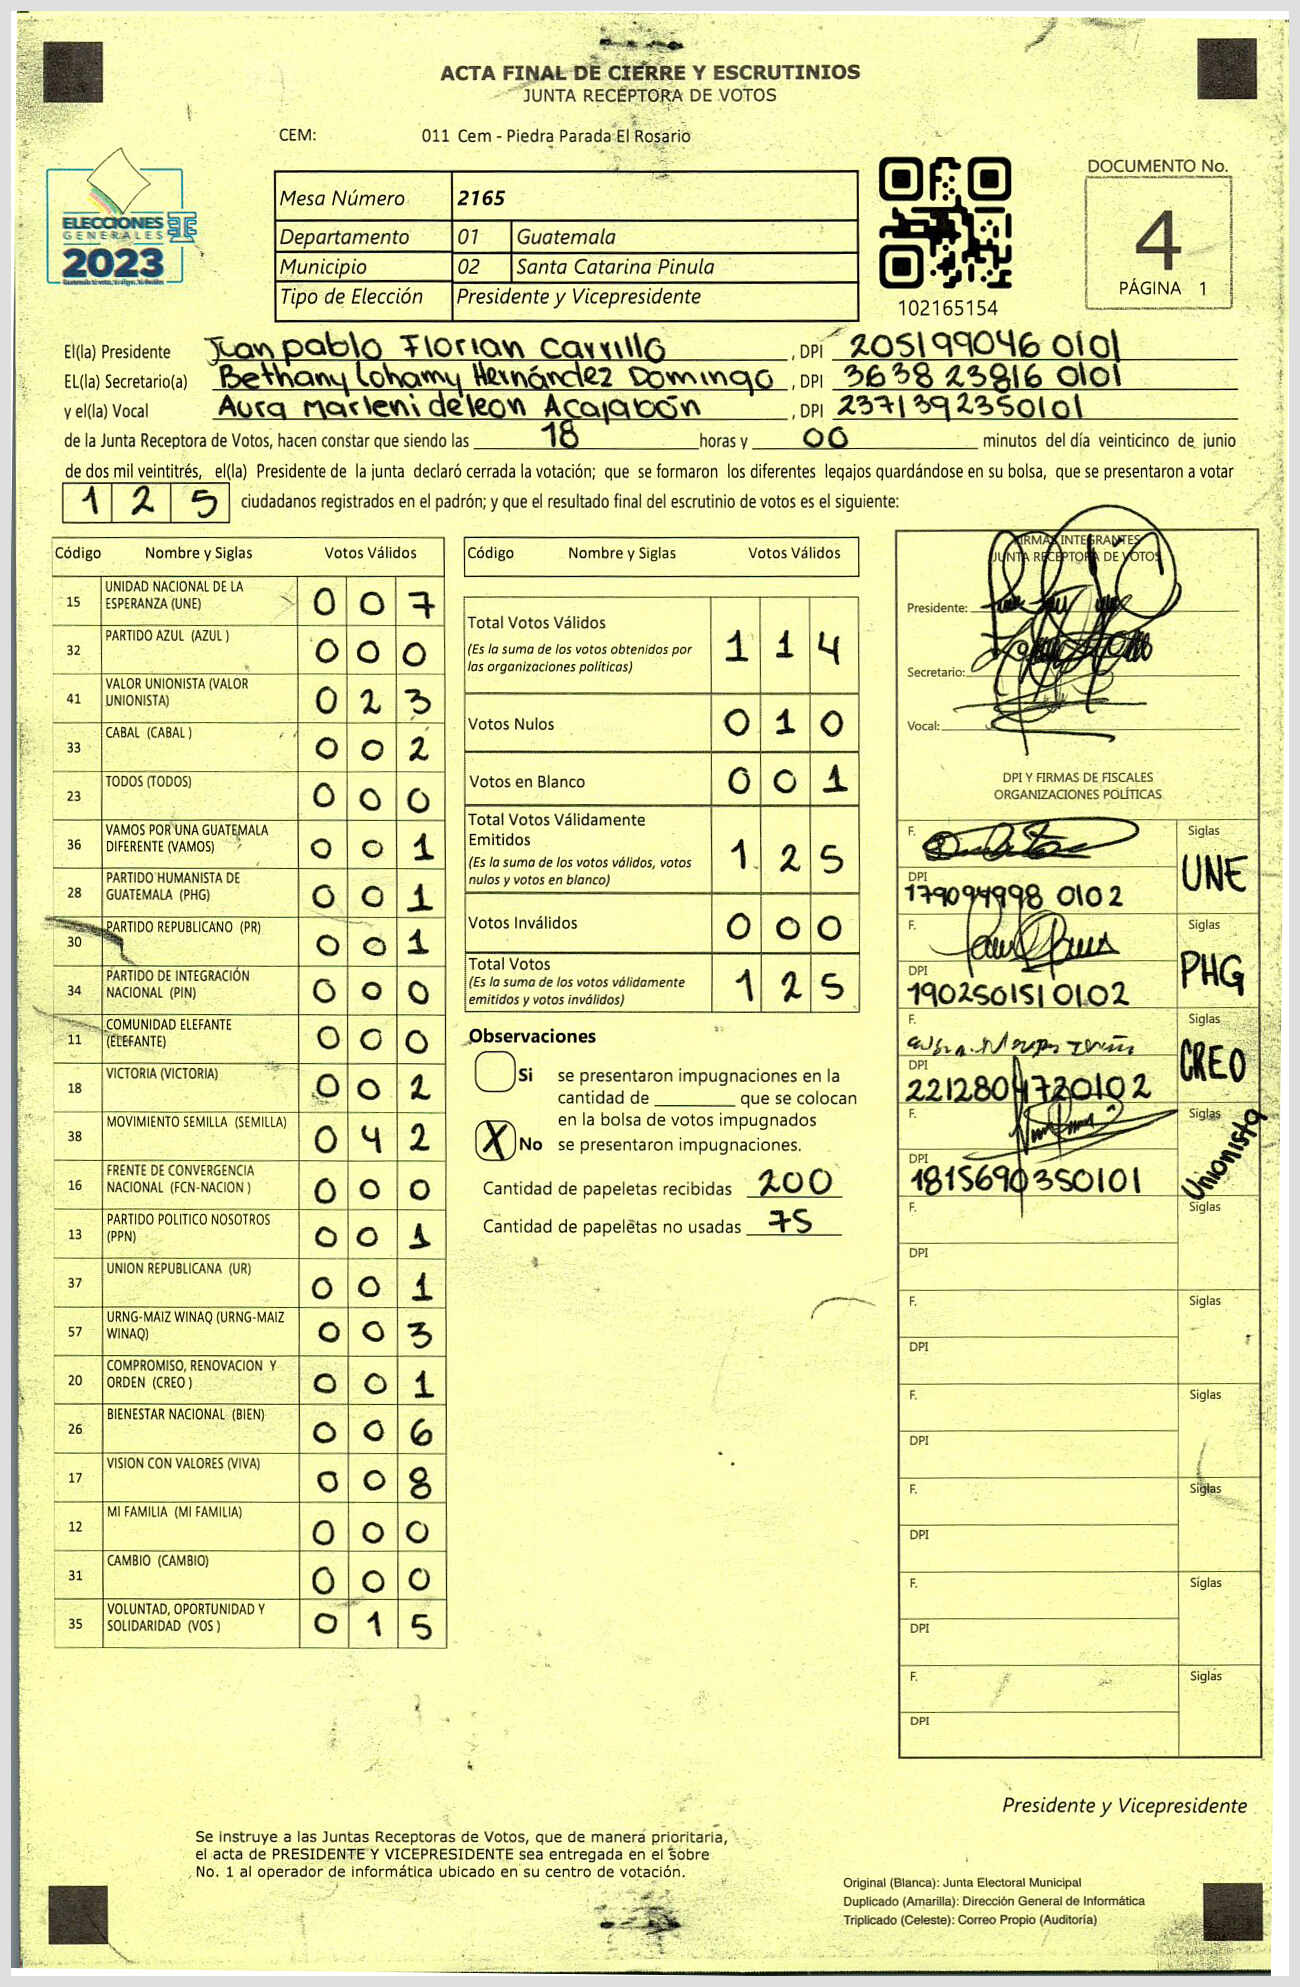 ACTA FINAL DE CIERRE Y ESCRUTINIOS
JUNTA RECEPTORA DE VOTOS
CEM: 011 Cem - Piedra Parada El Rosario
ELECCIONES
GENERALES
2023
Mesa Número 2165
Departamento 01 Guatemala
Municipio 02 Santa Catarina Pinula
Tipo de Elección Presidente y Vicepresidente
102165154
DOCUMENTO No.
4
PÁGINA 1
El(la) Presidente Juan pablo Florian Carrillo, DPI 205199046 0101
EL(la) Secretario(a) Bethany Lohamy Hernández Domingo, DPI 3638 23816 0101
y el(la) Vocal Aura Marleni deleon Acajabón, DPI 2371392350101
de la Junta Receptora de Votos, hacen constar que siendo las 18 horas y 00 minutos del día veinticinco de junio
de dos mil veintitrés, el(la) Presidente de la junta declaró cerrada la votación; que se formaron los diferentes legajos quardándose en su bolsa, que se presentaron a votar
1 2 5 ciudadanos registrados en el padrón; y que el resultado final del escrutinio de votos es el siguiente:
Código Nombre y Siglas Votos Válidos
15 UNIDAD NACIONAL DE LA ESPERANZA (UNE) 0 0 7
32 PARTIDO AZUL (AZUL ) 0 0 0
41 VALOR UNIONISTA (VALOR UNIONISTA) 0 2 3
33 CABAL (CABAL ) 0 0 2
23 TODOS (TODOS) 0 0 0
36 VAMOS POR UNA GUATEMALA DIFERENTE (VAMOS) 0 0 1
28 PARTIDO HUMANISTA DE GUATEMALA (PHG) 0 0 1
30 PARTIDO REPUBLICANO (PR) 0 0 1
34 PARTIDO DE INTEGRACIÓN NACIONAL (PIN) 0 0 0
11 COMUNIDAD ELEFANTE (ELEFANTE) 0 0 0
18 VICTORIA (VICTORIA) 0 0 2
38 MOVIMIENTO SEMILLA (SEMILLA) 0 4 2
16 FRENTE DE CONVERGENCIA NACIONAL (FCN-NACION ) 0 0 0
13 PARTIDO POLITICO NOSOTROS (PPN) 0 0 1
37 UNION REPUBLICANA (UR) 0 0 1
57 URNG-MAIZ WINAQ (URNG-MAIZ WINAQ) 0 0 3
20 COMPROMISO, RENOVACION Y ORDEN (CREO ) 0 0 1
26 BIENESTAR NACIONAL (BIEN) 0 0 6
17 VISION CON VALORES (VIVA) 0 0 8
12 MI FAMILIA (MI FAMILIA) 0 0 0
31 CAMBIO (CAMBIO) 0 0 0
35 VOLUNTAD, OPORTUNIDAD Y SOLIDARIDAD (VOS ) 0 1 5
Código Nombre y Siglas Votos Válidos
Total Votos Válidos 1 1 4
(Es la suma de los votos obtenidos por
las organizaciones políticas)
Votos Nulos 0 1 0
Votos en Blanco 0 0 1
Total Votos Válidamente
Emitidos 1 2 5
(Es la suma de los votos válidos, votos
nulos y votos en blanco)
Votos Inválidos 0 0 0
Total Votos 1 2 5
(Es la suma de los votos válidamente
emitidos y votos inválidos)
Observaciones
Si se presentaron impugnaciones en la
cantidad de ________ que se colocan
en la bolsa de votos impugnados
X No se presentaron impugnaciones.
Cantidad de papeletas recibidas 200
Cantidad de papeletas no usadas 75
FIRMAS INTEGRANTES
JUNTA RECEPTORA DE VOTOS
Presidente:
Secretario:
Vocal:
DPI Y FIRMAS DE FISCALES
ORGANIZACIONES POLÍTICAS
F. Siglas
UNE
DPI
179094998 0102
F. Siglas
PHG
DPI
1902501510102
F. Siglas
CREO
DPI
2212804720102
F. Siglas
Unionista
DPI
1815690350101
F. Siglas
DPI
F. Siglas
DPI
F. Siglas
DPI
F. Siglas
DPI
F. Siglas
DPI
F. Siglas
DPI
Presidente y Vicepresidente
Se instruye a las Juntas Receptoras de Votos, que de manera prioritaria,
el acta de PRESIDENTE Y VICEPRESIDENTE sea entregada en el sobre
No. 1 al operador de informática ubicado en su centro de votación.
Original (Blanca): Junta Electoral Municipal
Duplicado (Amarilla): Dirección General de Informática
Triplicado (Celeste): Correo Propio (Auditoría)